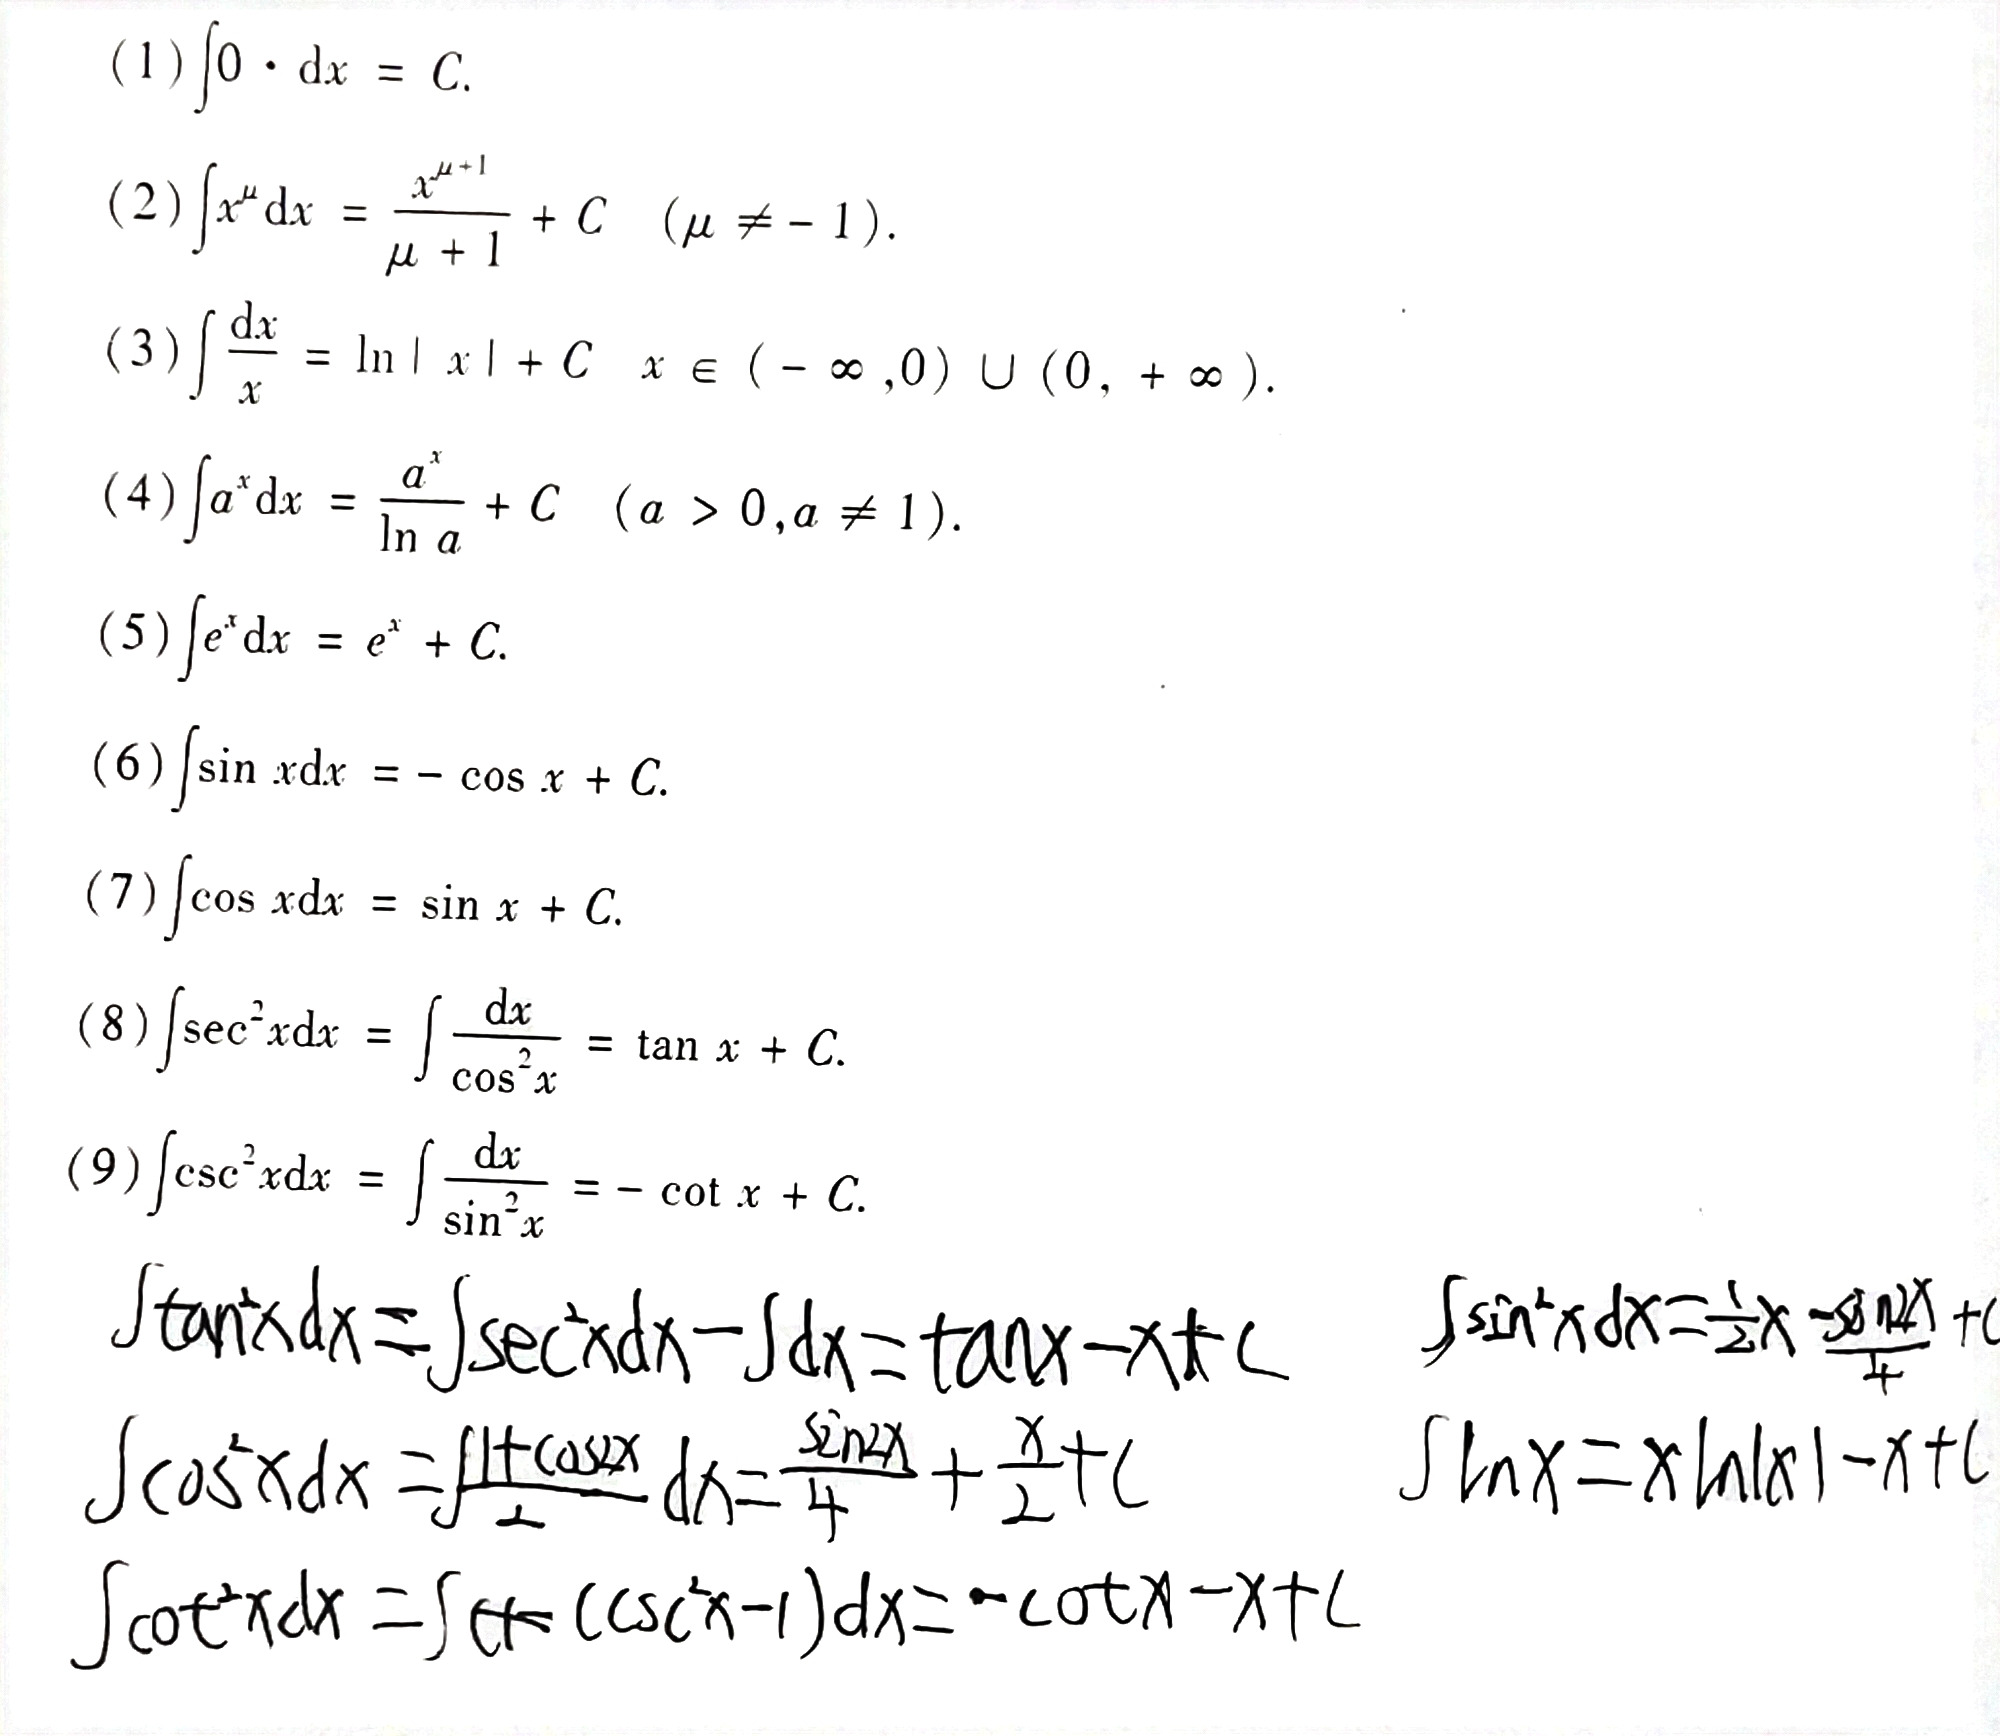 (1) ∫0 · dx = C.
(2) ∫x^μ dx = x^(μ+1)/(μ + 1) + C (μ ≠ - 1).
(3) ∫dx/x = ln | x | + C x ∈ ( - ∞ ,0) ∪ (0, + ∞ ).
(4) ∫a^x dx = a^x/ln a + C (a > 0,a ≠ 1).
(5) ∫e^x dx = e^x + C.
(6) ∫sin xdx = - cos x + C.
(7) ∫cos xdx = sin x + C.
(8) ∫sec²xdx = ∫dx/cos²x = tan x + C.
(9) ∫csc²xdx = ∫dx/sin²x = - cot x + C.
∫tan²xdx = ∫sec²xdx - ∫dx = tanx - x + C
∫sin²xdx = 1/2 x - sin2x/4 + C
∫cos²xdx = ∫(1+cos2x)/2 dx = sin2x/4 + x/2 + C
∫lnx = xln|x| - x + C
∫cot²xdx = ∫(csc²x-1)dx = -cotx - x + C